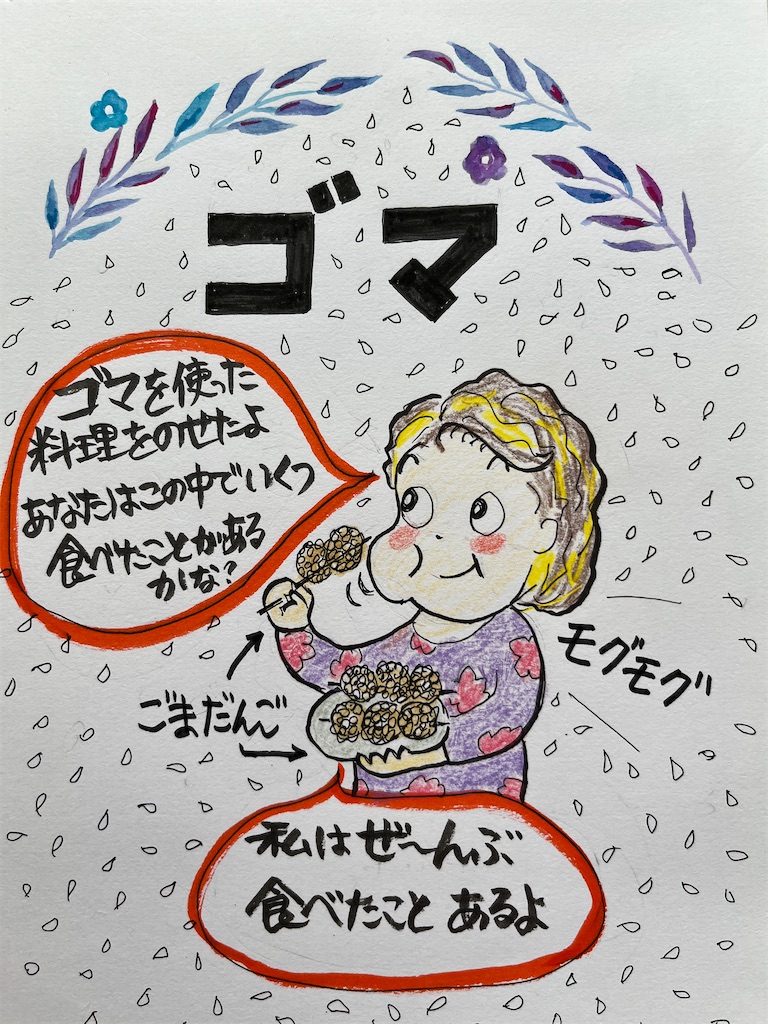 ゴマ
ゴマを使った
料理をのせたよ
あなたはこの中でいくつ
食べたことがある
かな?
モグモグ
ごまだんご
私はぜ〜んぶ
食べたことあるよ